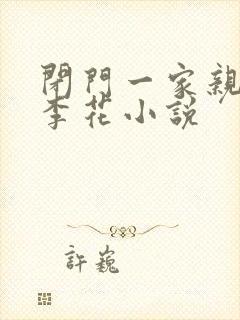 閉門一家親
李花小説
許巍